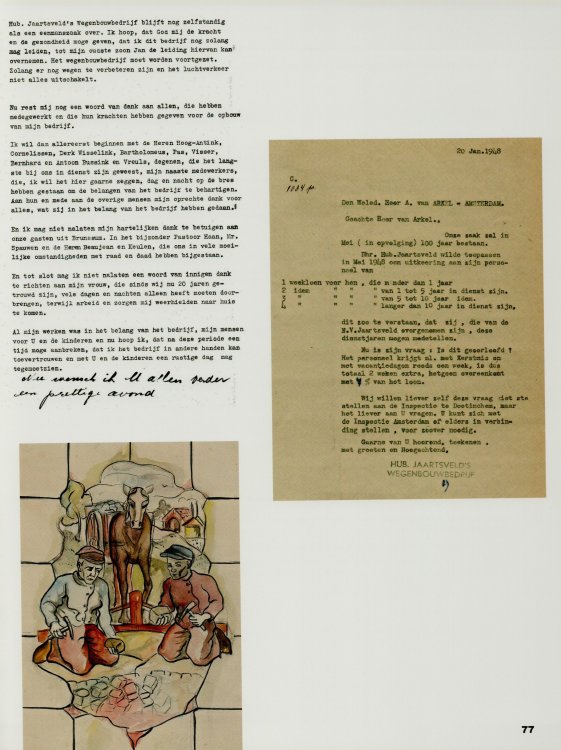 Hub. Jaartsveld's Wegenbouwbedrijf blijft nog zelfstandig
als een eenmanszaak over. Ik hoop, dat God mij de kracht
en de gezondheid moge geven, dat ik dit bedrijf nog zolang
mag leiden, tot mijn oudste zoon Jan de leiding hiervan kan
overnemen. Het wegenbouwbedrijf moet worden voortgezet.
Zolang er nog wegen te verbeteren zijn en het luchtverkeer
niet alles uitschakelt.
Nu rest mij nog een woord van dank aan allen, die hebben
medegewerkt en die hun krachten hebben gegeven voor de opbouw
van mijn bedrijf.
Ik wil dan allereerst beginnen met de Heren Hoog-Antink,
Cornelissen, Derk Wisselink, Bartholomeus, Pas, Visser,
Bernhard en Antoon Bussink en Vreuls, degenen, die het lang-
ste bij ons in dienst zijn geweest, mijn naaste medewerkers,
die, ik wil het hier gaarne zeggen, dag en nacht op de bres
hebben gestaan om de belangen van het bedrijf te behartigen.
Aan hun en mede aan de overige mensen mijn oprechte dank voor
alles, wat zij in het belang van het bedrijf hebben gedaan.
En ik mag niet nalaten mijn hartelijken dank te betuigen aan
onze gasten uit Brunssum. In het bijzonder Pastoor Haan, Mr.
Spauwen en de Heren Beaujean en Keulen, die ons in vele moei-
lijke omstandigheden met raad en daad hebben bijgestaan.
En tot slot mag ik niet nalaten een woord van innigen dank
te richten aan mijn vrouw, die sinds wij nu 20 jaren ge-
trouwd zijn, vele dagen en nachten alleen heeft moeten door-
brengen, terwijl arbeid en zorgen mij weerhielden naar huis
te komen.
Al mijn werken was in het belang van het bedrijf, mijn mensen
voor U en de kinderen en nu hoop ik, dat na deze periode een
tijd moge aanbreken, dat ik het bedrijf in andere handen kan
toevertrouwen en met U en de kinderen een rustige dag mag
tegemoetzien.
wensch ik U allen verder
een prettige avond
20 Jan.1948
C.
1084
Den Weled. Heer A. van ARKEL - AMSTERDAM.
Geachte Heer van Arkel.,
Onze zaak zal in
Mei ( in opvolging) 100 jaar bestaan.
Dhr. Hub.Jaartsveld wilde toepassen
in Mei 1948 een uitkeering aan zijn perso-
neel van
1 weekloon voor hen , die minder dan 1 jaar
2 idem " " " van 1 tot 5 jaar in dienst zijn.
3 " " " " van 5 tot 10 jaar idem.
4 " " " " langer dan 10 jaar in dienst zijn,
dit zoo te verstaan, dat zij , die van de
N.V.Jaartsveld overgenomen zijn , deze
dienstjaren mogen medetellen.
Nu is mijn vraag : Is dit geoorloofd ?
Het personeel krijgt nl. met Kerstmis en
met vacantiedagen reeds een week, is dus
totaal 2 weken extra, hetgeen overeenkomt
met 4 % van het loon.
Wij willen liever zelf deze vraag niet ste
stellen aan de Inspectie te Doetinchem, maar
het liever aan U vragen. U kunt zich met
de Inspectie Amsterdam of elders in verbin-
ding stellen , voor zoover noodig.
Gaarne van U hoorend, teekenen ,
met groeten en Hoogachtend,
HUB. JAARTSVELD'S
WEGENBOUWBEDRIJF
77